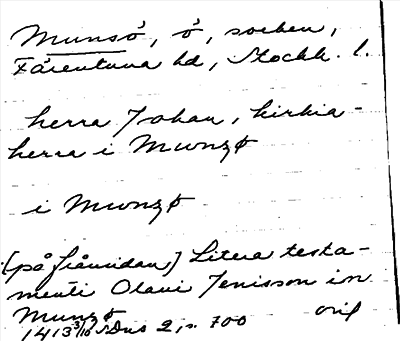 Munsö, ö, socken,
Färentuna hd, Stockh. l.
herra Johan, kirkia-
herra i Mwnzø
i Mwnzø
(på frånsidan) Litera testa-
menti Olaui Jenisson in
Munzø
1413 3/10 SDns 2, s. 700 orig